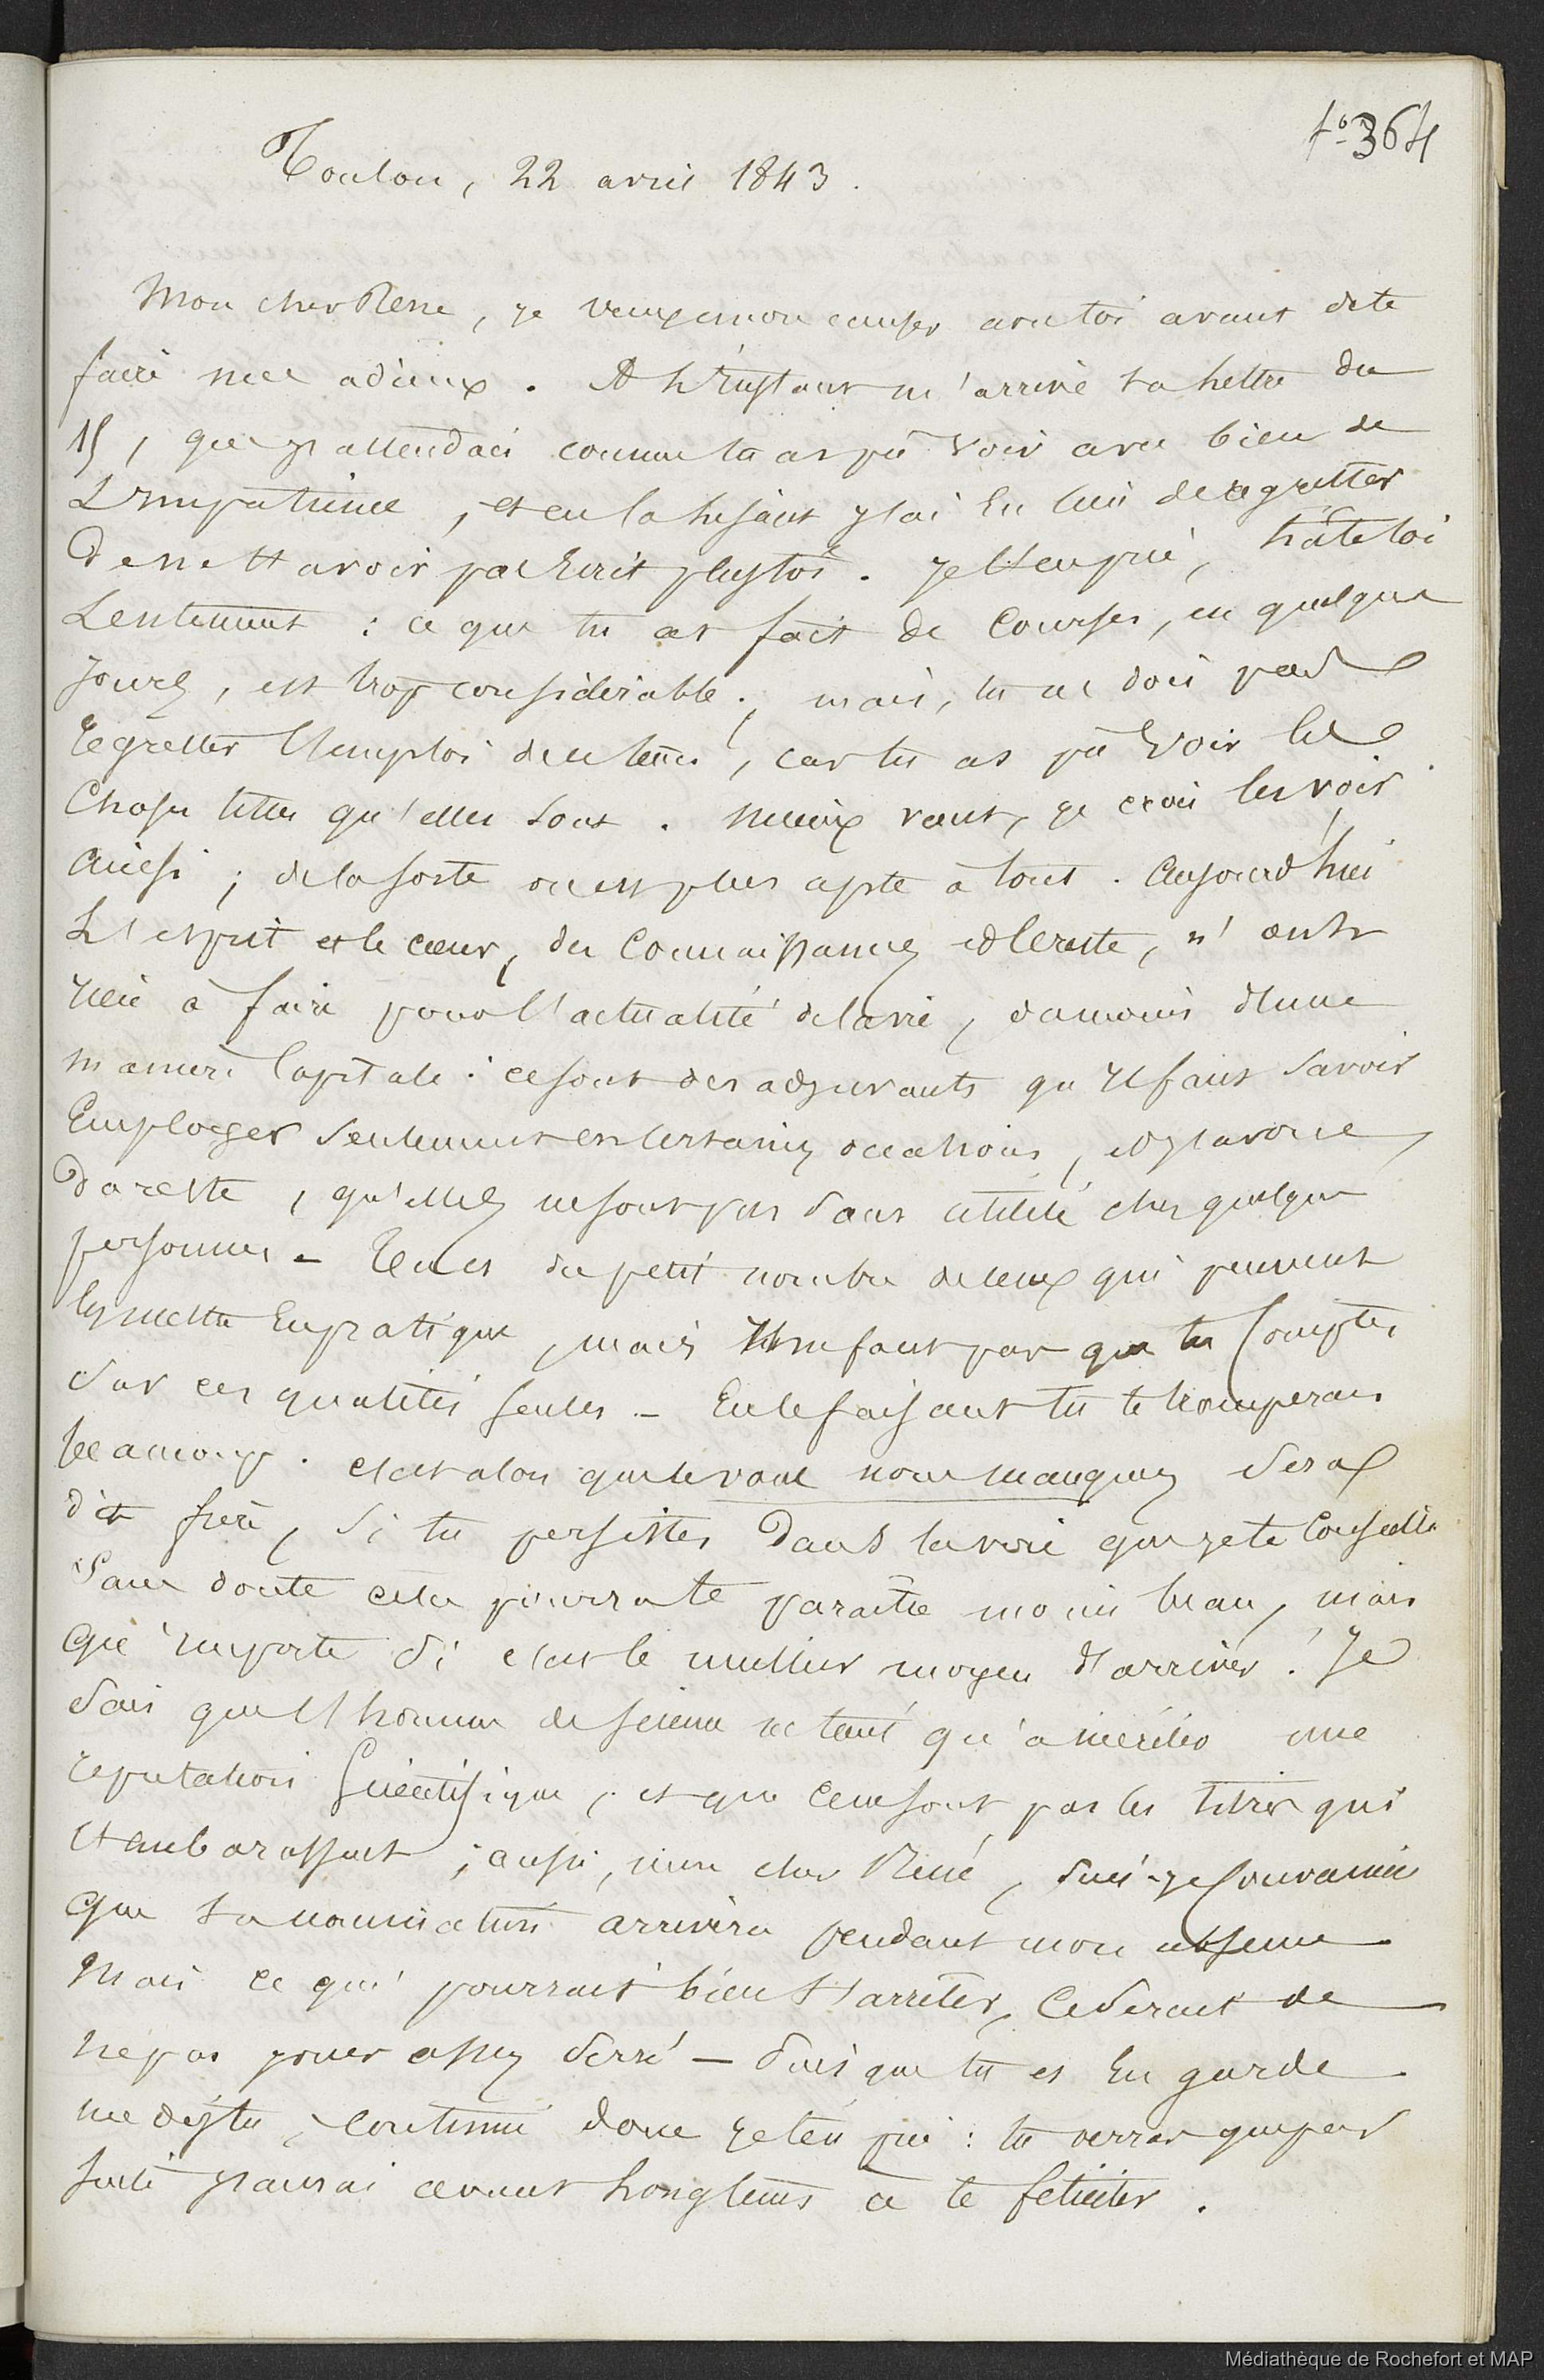 fo 364
Toulon, 22 avril 1843.
Mon cher René, je veux encore causer avec toi avant de te
faire mes adieux. A l'instant m'arrive ta lettre du
15, que j'attendais comme tu as pu voir avec bien de
L'impatience, et en la lisant j'ai eu lieu de regretter
De ne t'avoir pas Ecrit plustôt. Je t'en prie, hâte toi
Lentement : ce que tu as fait de Courses, en quelques
Jours, est trop considérable ; mais, tu ne dois pas
Regretter l'emploi de ce tems, car tu as pu Voir les
Choses telles qu'elles sont. Mieux vaut, je crois les voir
Ainsi ; de la sorte on est plus apte à tout. Aujourd'hui
L'esprit et le cœur, des Connaissances et le reste, n'ont
rien à faire pour l'actualité de la vie, du moins d'une
maniere Capitale : ce sont des adjuvants qu'il faut Savoir
Employer seulement en certaines occasions, et j'avoue,
Du reste, qu'elles ne sont pas sans utilité chez quelques
personnes - Tu es du petit nombre de ceux qui peuvent
les mettre En pratique, mais il ne faut pas que tu Comptes
sur ces qualités seules - En le faisant tu te tromperais
beaucoup. C'est alors que le vous nous manquez sera
dit frère, si tu persistes Dans la voie que je te Conseille
Sans doute cela pourra te paraître moins beau, mais
Qu'importe si c'est le meilleur moyen d'arriver ! Je
sais que l'homme de science ne tient qu'à mériter une
reputation Scientifique, et que ce ne sont pas les titres qui
t'embarassent ; aussi, mon cher René, suis-je Convaincu
Que ta nomination arrivera pendant mon absence
Mais ce qui pourrait bien t'arrêter, ce serait de
ne pas jouer assez serré - Puisque tu es En garde
me dis tu, continue donc je t'en prie : tu verras que par
suite j'aurai avant Longtems à te feliciter.
Médiathèque de Rochefort et MAP